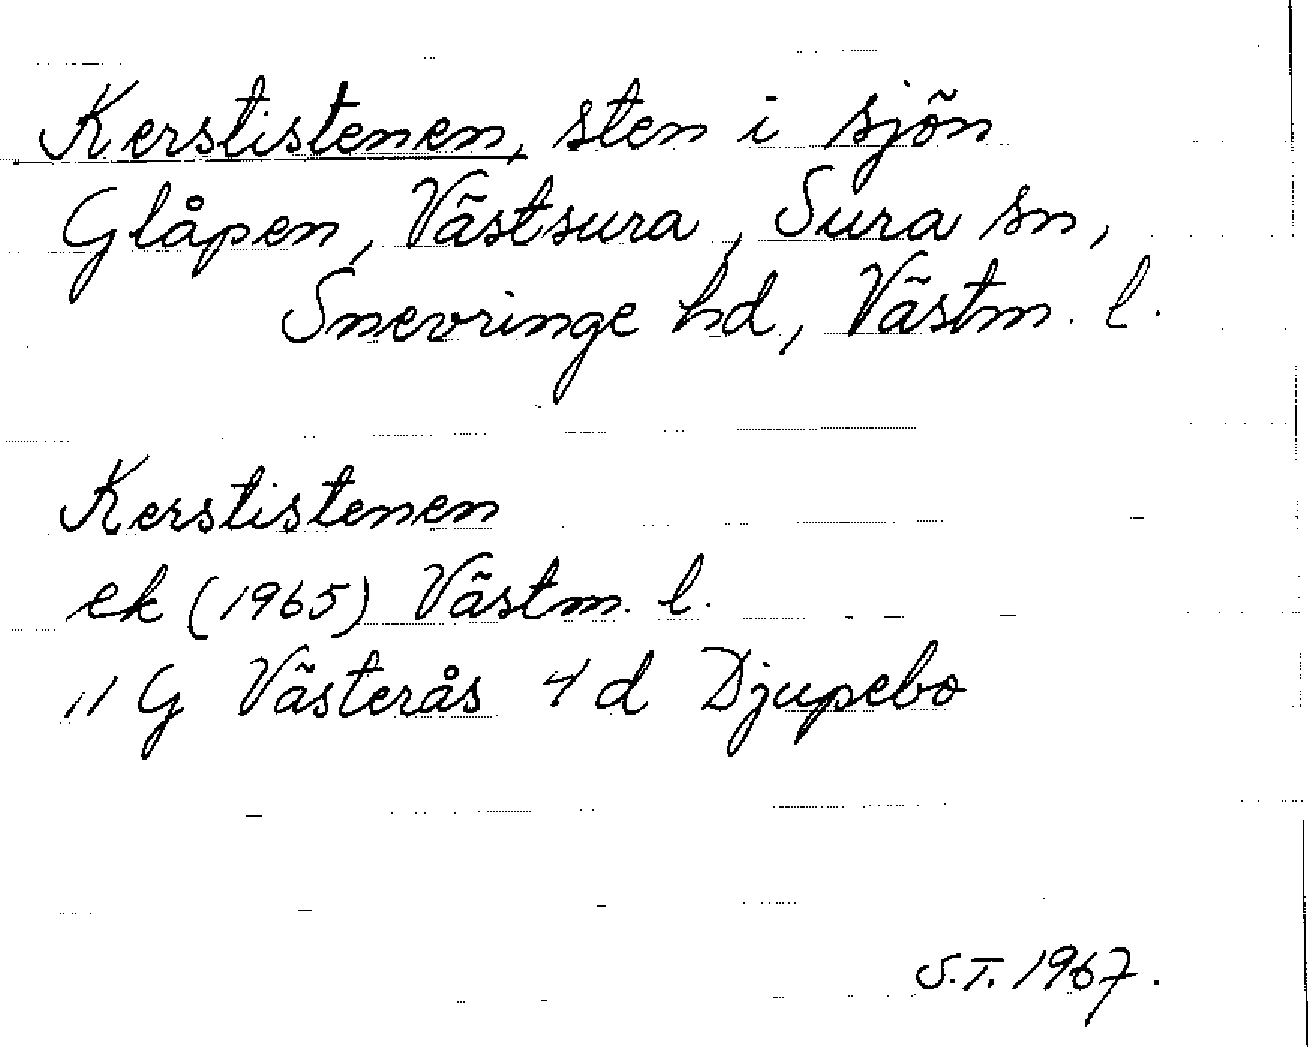 Kerstistenen, sten i sjön
Glåpen, Västsura, Sura sn,
Snevringe hd, Västm. l.
Kerstistenen
ek (1965) Västm. l.
11 G Västerås 4 d Djupebo
S.T. 1967.